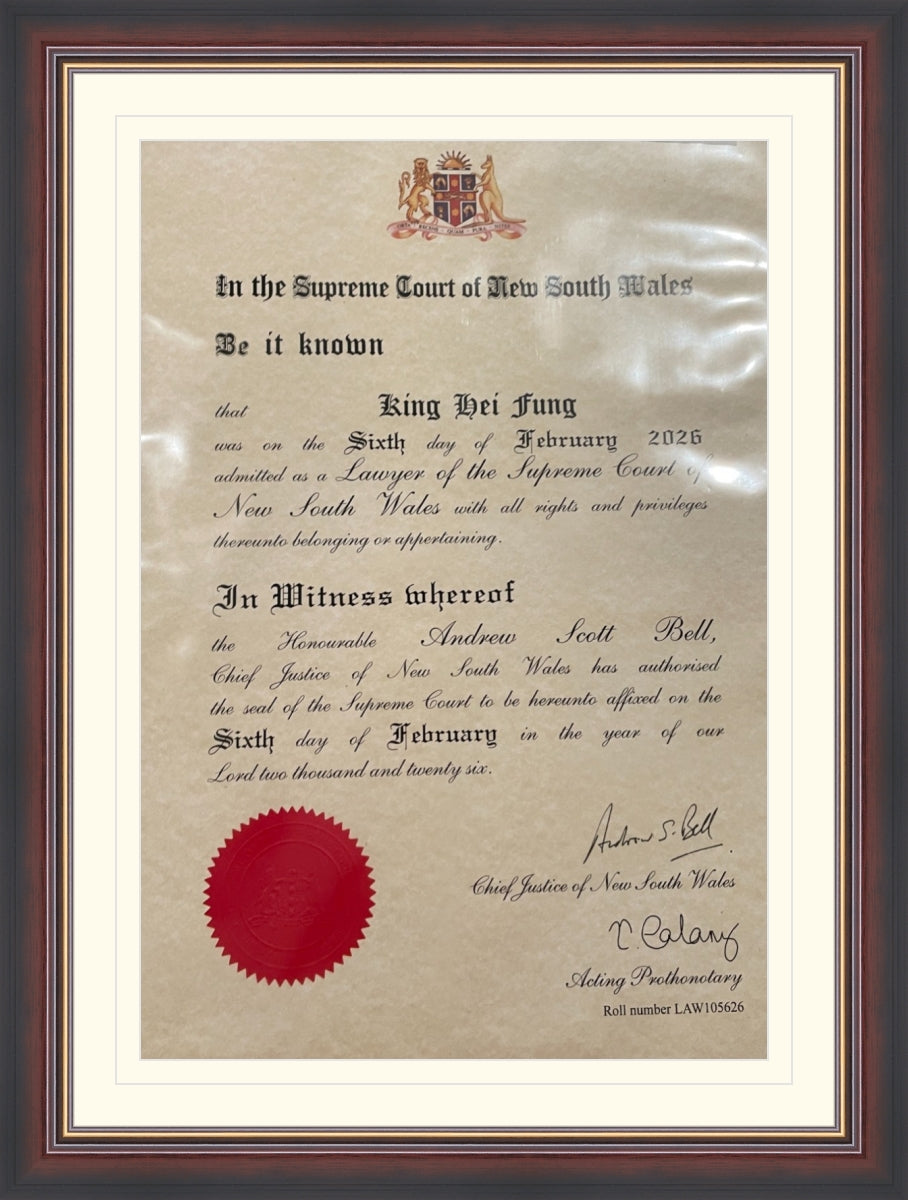 ORTA RECENS QUAM PURA NITES
In the Supreme Court of New South Wales
Be it known
that King Hei Fung
was on the Sixth day of February 2026
admitted as a Lawyer of the Supreme Court of
New South Wales with all rights and privileges
thereunto belonging or appertaining.
In Witness whereof
the Honourable Andrew Scott Bell,
Chief Justice of New South Wales has authorised
the seal of the Supreme Court to be hereunto affixed on the
Sixth day of February in the year of our
Lord two thousand and twenty six.
Andrew S. Bell
Chief Justice of New South Wales
Acting Prothonotary
Roll number LAW105626